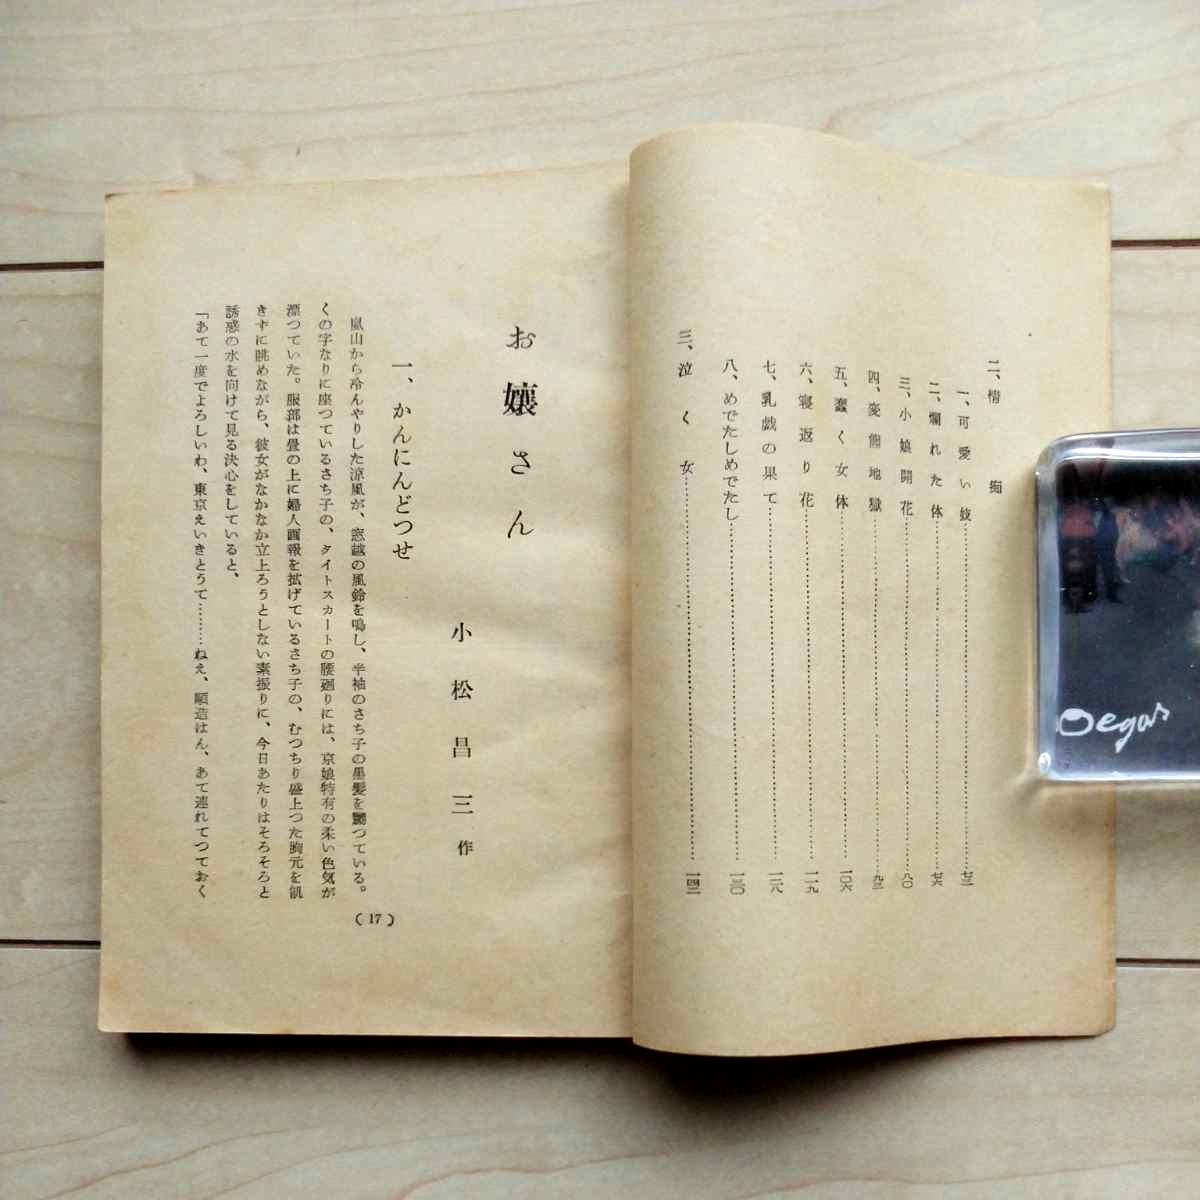 二、情痴
一、可愛い妓……七三
二、爛れた体……七六
三、小娘開花……八〇
四、変態地獄……九三
五、蠢く女体……一〇六
六、寝返り花……一一九
七、乳戯の果て……一二八
八、めでたしめでたし……一三〇
三、泣く女……一四二
お嬢さん
小松昌三作
一、かんにんどつせ
嵐山から冷んやりした涼風が、窓越の風鈴を鳴し、半袖のさち子の黒髪を嬲つている。
くの字なりに座つているさち子の、タイトスカートの腰廻りには、京娘特有の柔い色気が
漂つていた。服部は畳の上に婦人画報を拡げているさち子の、むつちり盛上つた胸元を飢
きずに眺めながら、彼女がなかなか立上ろうとしない素振りに、今日あたりはそろそろと
誘惑の水を向けて見る決心をしていると、
「あて一度でよろしいわ、東京えいきとうて………ねえ、順造はん、あて連れてつておく
(17)
Degas